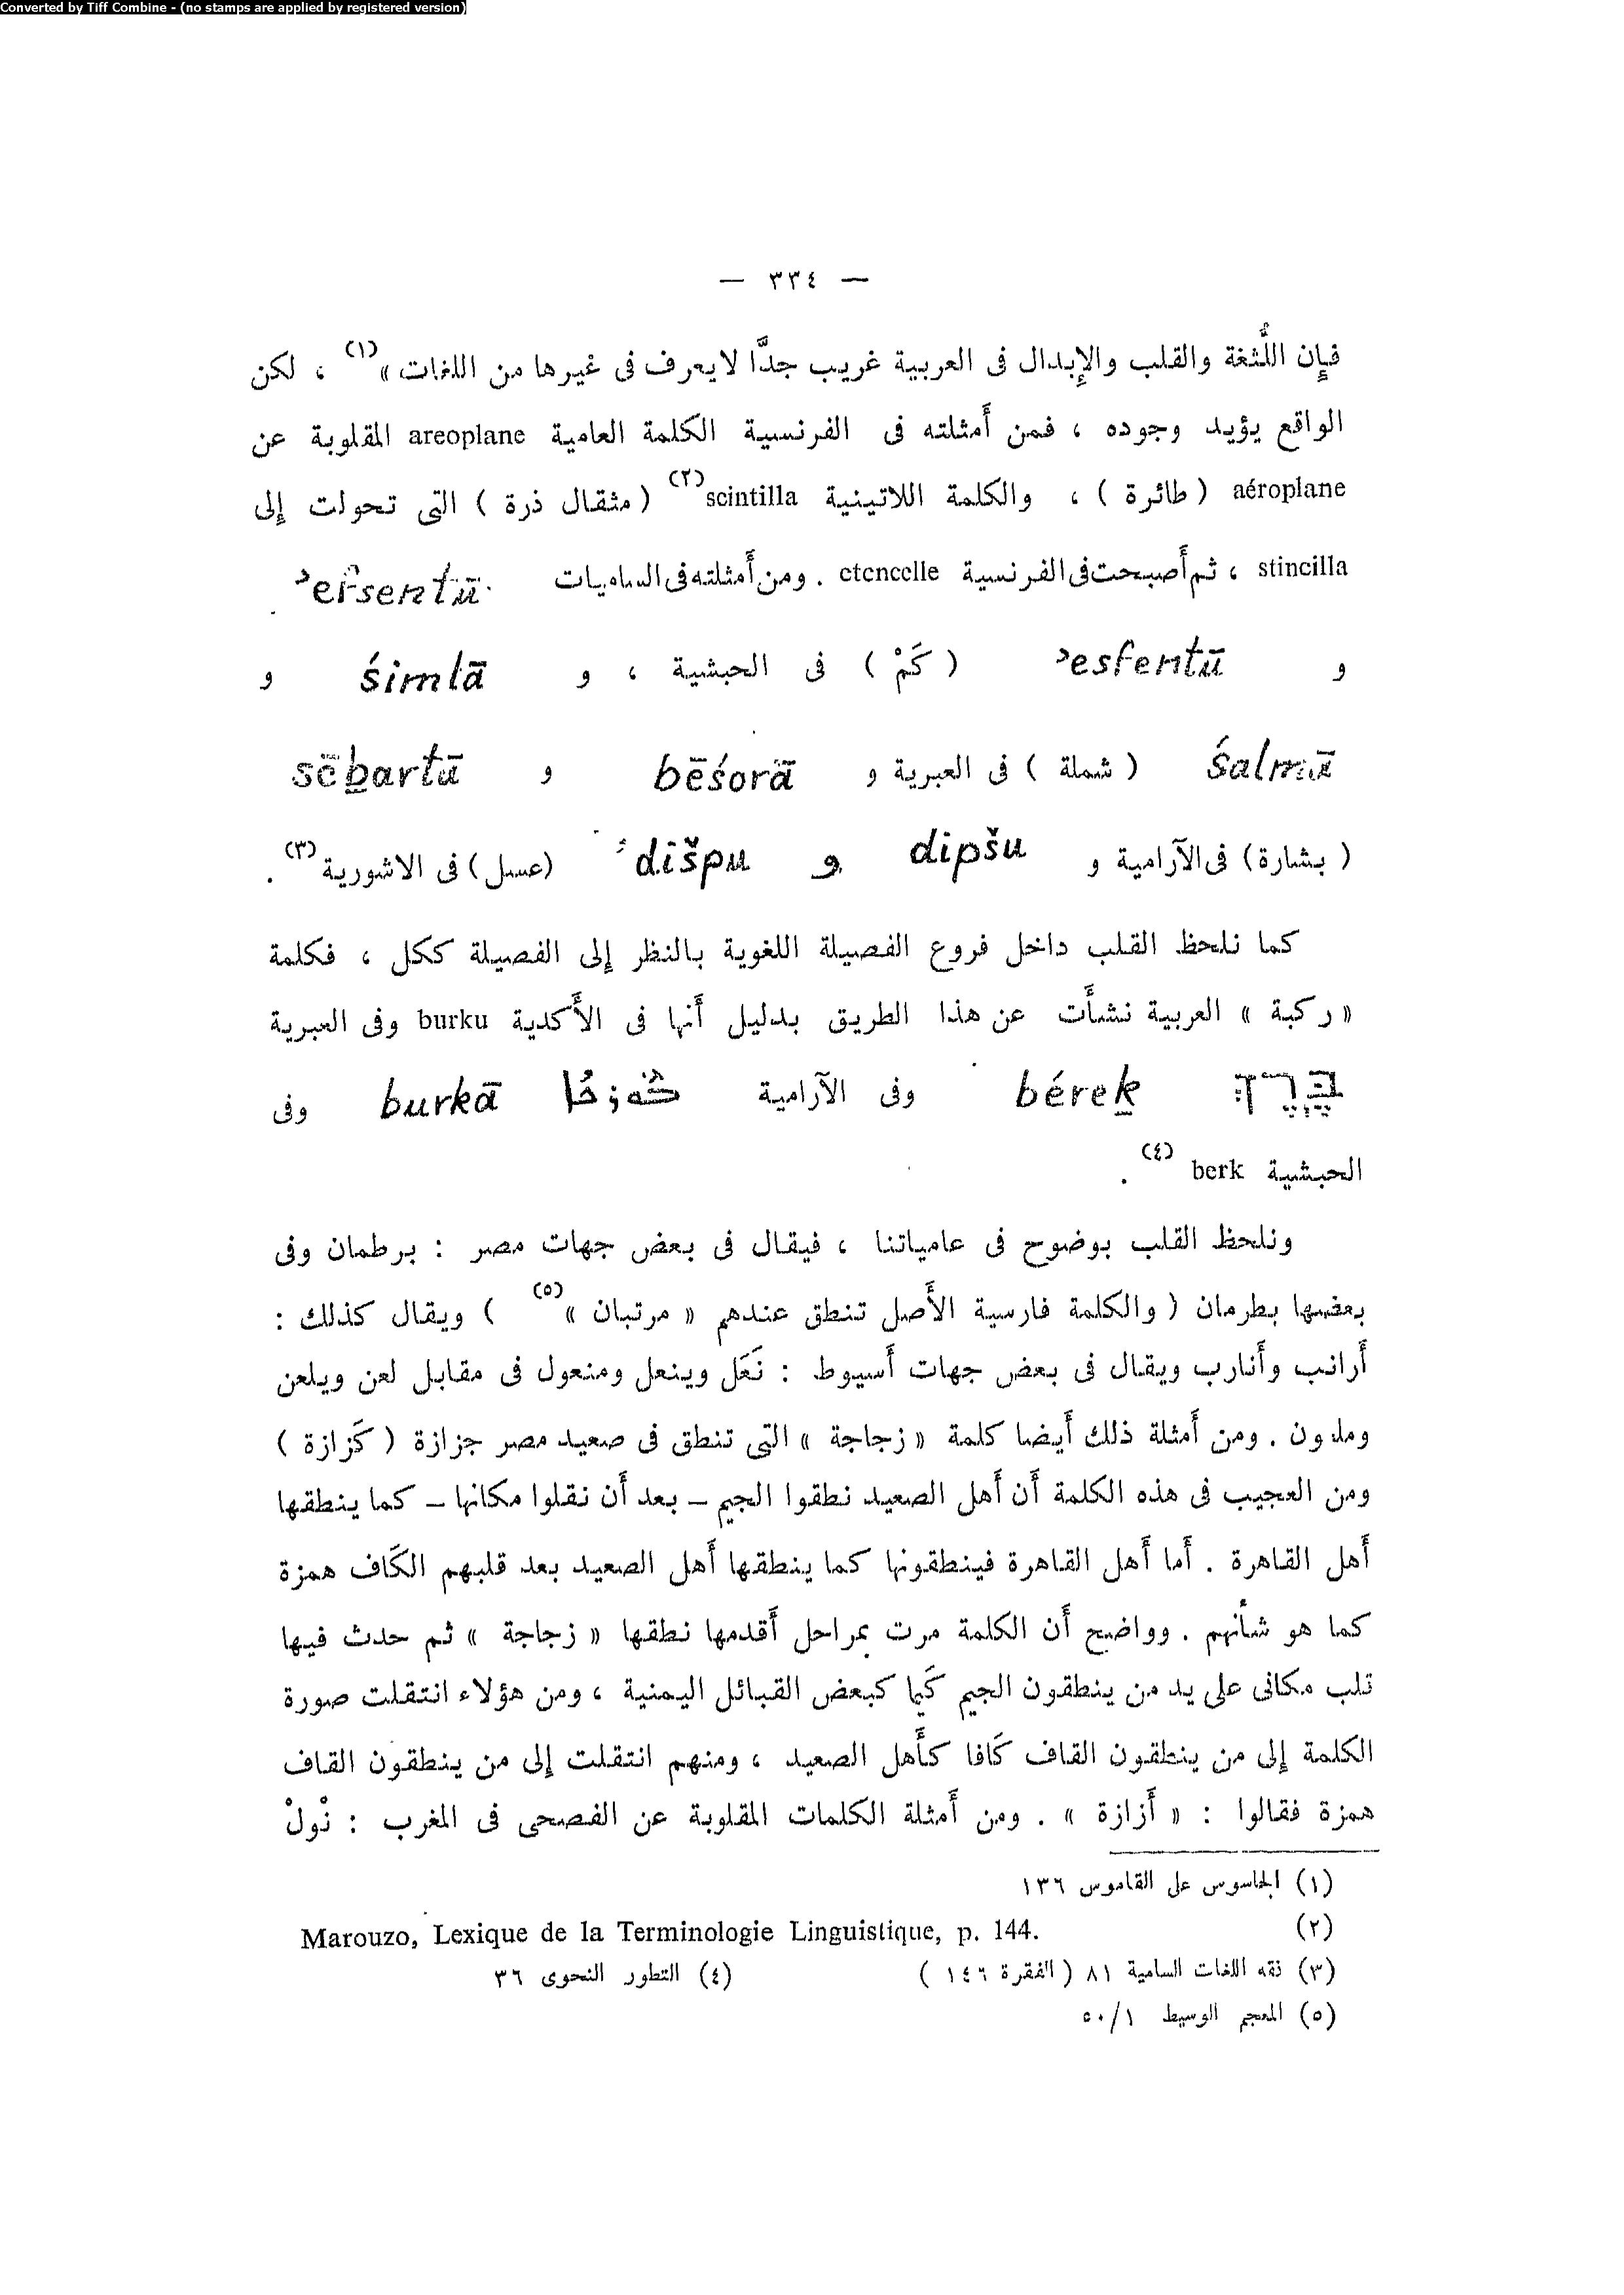 Converted by Tiff Combine - (no stamps are applied by registered version)
— ٣٣٤ —
فإِن اللُّثغة والقلب والإِبدال فى العربية غريب جدًّا لايعرف فى غيرها من اللغات » (١) ، لكن
الواقع يؤيد وجوده ، فمن أَمثلته فى الفرنسية الكلمة العامية areoplane المقلوبة عن
aéroplane ( طائرة ) ، والكلمة اللاتينية scintilla (٢) ( مثقال ذرة ) التى تحولت إِلى
stincilla ، ثم أَصبحت فى الفرنسية etencelle . ومن أَمثلته فى الساميات
و ʾesfentū ( كَمْ ) فى الحبشية ، و śimlā و
śalmā ( شملة ) فى العبرية و bēśorā و sēḇartā
( بشارة ) فى الآرامية و dipšu و dišpu ( عسل ) فى الاشورية (٣) .
كما نلحظ القلب داخل فروع الفصيلة اللغوية بالنظر إِلى الفصيلة ككل ، فكلمة
« ركبة » العربية نشأَت عن هذا الطريق بدليل أَنها فى الأَكدية burku وفى العبرية
בֶּרֶךְ béreḵ وفى الآرامية ܒܘܪܟܐ burkā وفى
الحبشية berk (٤) .
ونلحظ القلب بوضوح فى عامياتنا ، فيقال فى بعض جهات مصر : برطمان وفى
بعضها بطرمان ( والكلمة فارسية الأَصل تنطق عندهم « مرتبان » (٥) ) ويقال كذلك :
أَرانب وأَنارب ويقال فى بعض جهات أَسيوط : نَعَل وينعل ومنعول فى مقابل لعن ويلعن
وملعون . ومن أَمثلة ذلك أَيضا كلمة « زجاجة » التى تنطق فى صعيد مصر جزازة ( كَزازة )
ومن العجيب فى هذه الكلمة أَن أَهل الصعيد نطقوا الجيم – بعد أَن نقلوا مكانها – كما ينطقها
أَهل القاهرة . أَما أَهل القاهرة فينطقونها كما ينطقها أَهل الصعيد بعد قلبهم الكَاف همزة
كما هو شأنهم . وواضح أَن الكلمة مرت بمراحل أَقدمها نطقها « زجاجة » ثم حدث فيها
قلب مكانى على يد من ينطقون الجيم كَيا كبعض القبائل اليمنية ، ومن هؤلاء انتقلت صورة
الكلمة إِلى من ينطقون القاف كَافا كأَهل الصعيد ، ومنهم انتقلت إِلى من ينطقون القاف
همزة فقالوا : « أَزازة » . ومن أَمثلة الكلمات المقلوبة عن الفصحى فى المغرب : نْولْ
(١) الجاسوس على القاموس ١٣٦
(٢) Marouzo, Lexique de la Terminologie Linguistique, p. 144.
(٣) فقه اللغات السامية ٨١ ( الفقرة ١٤٦ ) (٤) التطور النحوى ٣٦
(٥) المعجم الوسيط ١/٥٠